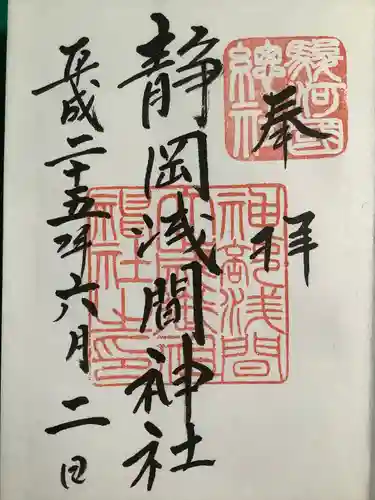 奉拝
駿河國総社
静岡浅間神社
平成二十五年六月二日